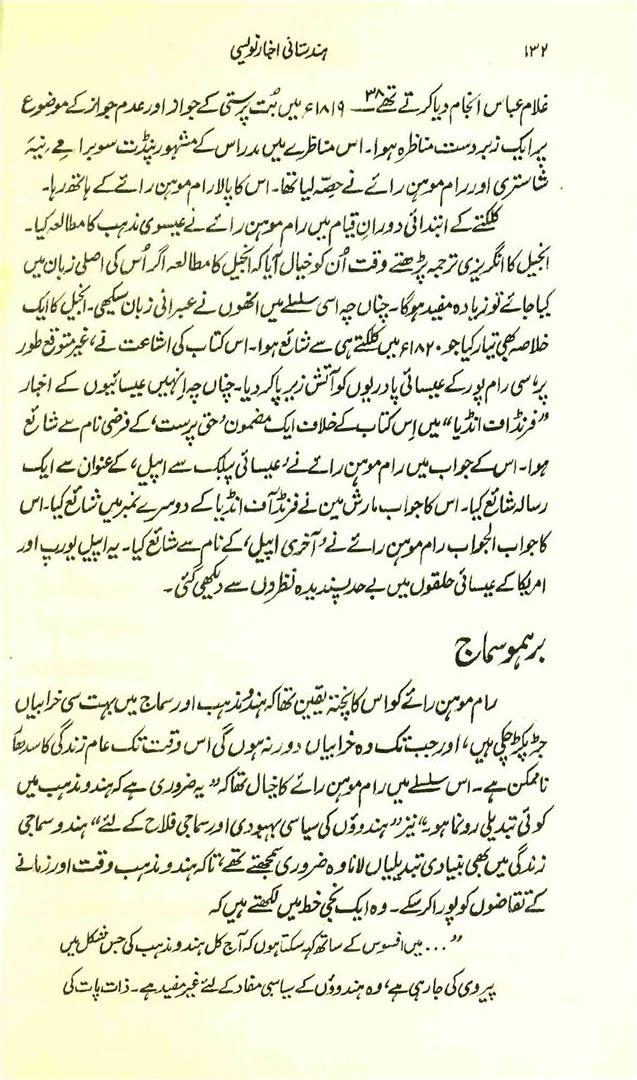 ۱۳۲
ہندستانی اخبار نویسی
غلام عباس انجام دیا کرتے تھے۳۸ــ ۱۸۱۹ء میں بُت پرستی کے جواز اور عدم جواز کے موضوع
پر ایک زبردست مناظرہ ہوا۔ اس مناظرے میں مدراس کے مشہور پنڈت سوبرا
شاستری اور رام موہن رائے نے حصّہ لیا تھا۔ اس کا پالا رام موہن رائے کے ہاتھ رہا۔
کلکتے کے ابتدائی دورانِ قیام میں رام موہن رائے نے عیسوی مذہب کا مطالعہ کیا۔
انجیل کا انگریزی ترجمہ پڑھتے وقت اُن کو خیال آیا کہ انجیل کا مطالعہ اگر اُس کی اصلی زبان میں
کیا جائے تو زیادہ مفید ہوگا۔ چناں چہ اسی سلسلے میں انھوں نے عبرانی زبان سیکھی۔ انجیل کا ایک
خلاصہ بھی تیار کیا جو ۱۸۲۰ء میں کلکتے ہی سے شائع ہوا۔ اس کتاب کی اشاعت نے، غیر متوقع طور
پر، سی رام پور کے عیسائی پادریوں کو آتش زیر پا کر دیا۔ چناں چہ اِنہیں عیسائیوں کے اخبار
”فرنڈ اف انڈیا“ میں اِس کتاب کے خلاف ایک مضمون ’حق پرست‘ کے فرضی نام سے شائع
ہوا۔ اس کے جواب میں رام موہن رائے نے ’عیسائی پبلک سے اپیل‘ کے عنوان سے ایک
رسالہ شائع کیا۔ اس کا جواب مارش مین نے فرنڈ آف انڈیا کے دوسرے نمبر میں شائع کیا۔ اس
کا جواب الجواب رام موہن رائے نے ’آخری اپیل‘ کے نام سے شائع کیا۔ یہ اپیل یورپ اور
امریکا کے عیسائی حلقوں میں بے حد پسندیدہ نظروں سے دیکھی گئی۔
برہمو سماج
رام موہن رائے کو اس کا پختہ یقین تھا کہ ہندو مذہب اور سماج میں بہت سی خرابیاں
جڑ پکڑ چکی ہیں، اور جب تک وہ خرابیاں دور نہ ہوں گی اس وقت تک عام زندگی کا سدھار
ناممکن ہے۔ اس سلسلے میں رام موہن رائے کا خیال تھا کہ ”یہ ضروری ہے کہ ہندو مذہب میں
کوئی تبدیلی رونما ہو۔“ نیز ”ہندوؤں کی سیاسی بہبودی اور سماجی فلاح کے لئے“ ہندو سماجی
زندگی میں بھی بنیادی تبدیلیاں لانا وہ ضروری سمجھتے تھے، تاکہ ہندو مذہب وقت اور زمانے
کے تقاضوں کو پورا کر سکے۔ وہ ایک نجی خط میں لکھتے ہیں کہ
”... میں افسوس کے ساتھ کہہ سکتا ہوں کہ آج کل ہندو مذہب کی جس شکل میں
پیروی کی جا رہی ہے، وہ ہندوؤں کے سیاسی مفاد کے لئے غیر مفید ہے۔ ذات پات کی